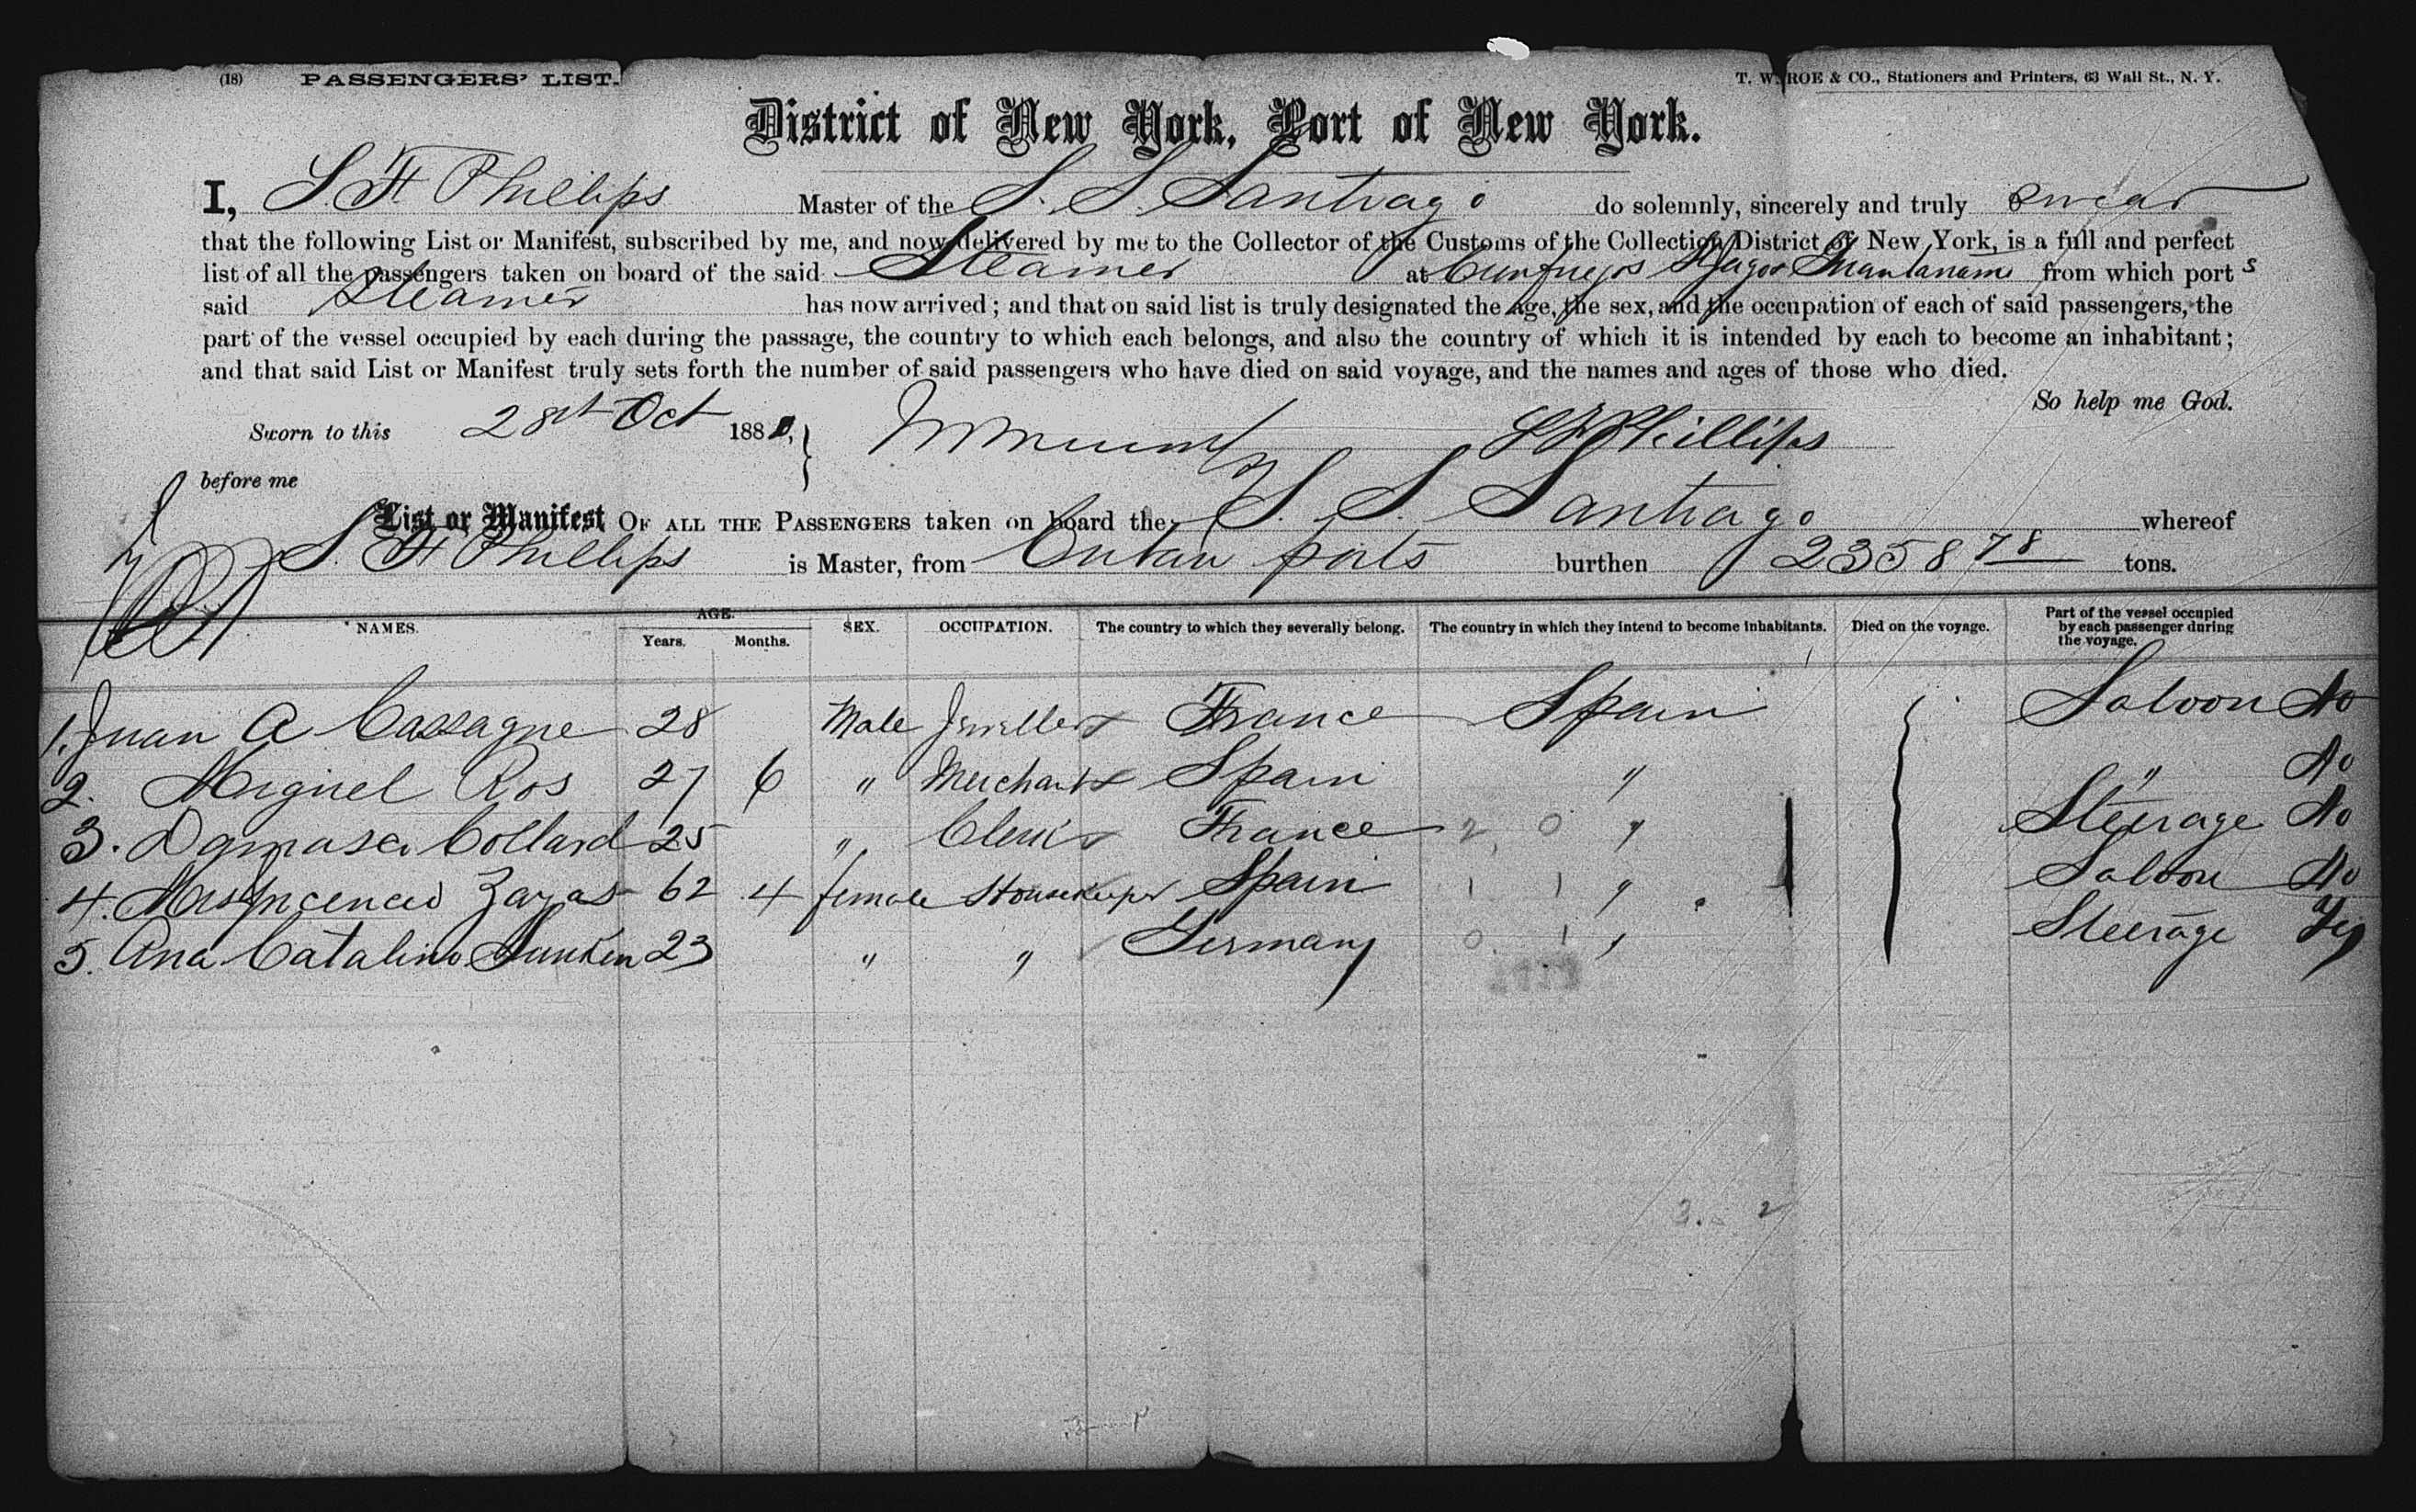 (18) PASSENGERS' LIST. T. W. ROE & CO., Stationers and Printers, 63 Wall St., N. Y.
District of New York, Port of New York.
I, S. F. Phillips Master of the S. S. Santiago do solemnly, sincerely and truly swear
that the following List or Manifest, subscribed by me, and now delivered by me to the Collector of the Customs of the Collection District of New York, is a full and perfect
list of all the passengers taken on board of the said Steamer at Cienfuegos St Jago & Guantanamo from which ports
said Steamer has now arrived; and that on said list is truly designated the age, the sex, and the occupation of each of said passengers, the
part of the vessel occupied by each during the passage, the country to which each belongs, and also the country of which it is intended by each to become an inhabitant;
and that said List or Manifest truly sets forth the number of said passengers who have died on said voyage, and the names and ages of those who died.
So help me God.
Sworn to this 28st Oct 188 S F Phillips
before me
List or Manifest OF ALL THE PASSENGERS taken on board the S. S. Santiago whereof
S. F. Phillips is Master, from Cuban ports burthen 2358 78 tons.
NAMES. AGE. Years. Months. SEX. OCCUPATION. The country to which they severally belong. The country in which they intend to become inhabitants. Died on the voyage. Part of the vessel occupied by each passenger during the voyage.
1. Juan A Cassagne 28 Male Jeweller France Spain Saloon No
2. Miguel Ros 27 6 " Merchant Spain " " No
3. Damasa Collard 25 " Clerk France 2 0 " Steerage No
4. Zayas 62 4 female Housekeeper Spain 1 1 " Saloon No
5. Ana Catalina Sunken 23 " " Germany 0 1 " Steerage Yes
3. 2